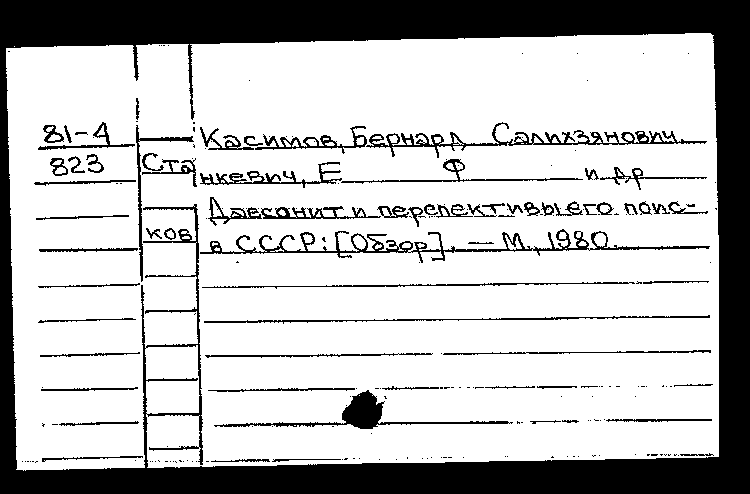 81-4 Касимов, Бернард Салихзянович.
823 Станкевич, Е Ф и др
Давсонит и перспективы его поис-
ков в СССР: [Обзор]. — М., 1980.